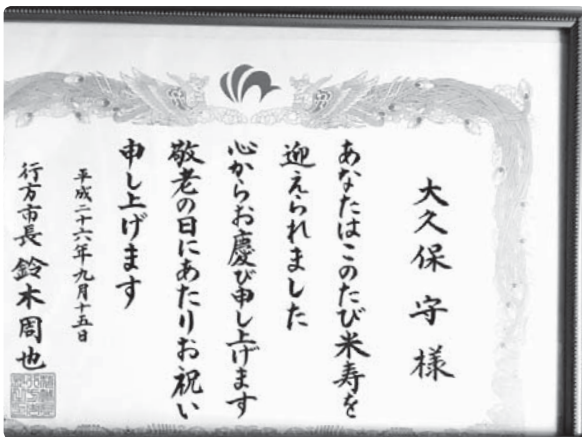 大久保 守 様
あなたはこのたび米寿を
迎えられました
心からお慶び申し上げます
敬老の日にあたりお祝い
申し上げます
平成二十六年九月十五日
行方市長 鈴木周也